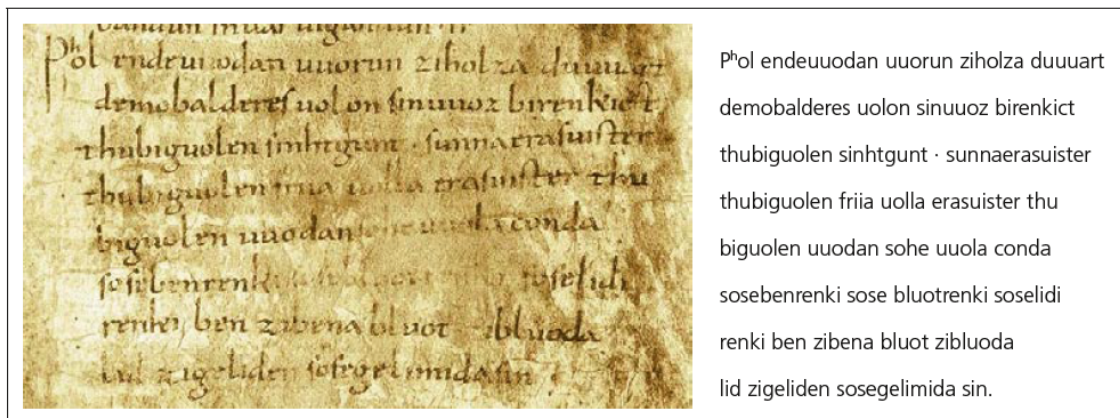 Pʰol endeuuodan uuorun ziholza duuuart
demobalderes uolon sinuuoz birenkict
thubiguolen sinhtgunt · sunnaerasuister
thubiguolen friia uolla erasuister thu
biguolen uuodan sohe uuola conda
sosebenrenki soselidi
renki ben zibena bluot zibluoda
lid zigeliden sosegelimida sin
Pʰol endeuuodan uuorun ziholza duuuart
demobalderes uolon sinuuoz birenkict
thubiguolen sinhtgunt · sunnaerasuister
thubiguolen friia uolla erasuister thu
biguolen uuodan sohe uuola conda
sosebenrenki sose bluotrenki soselidi
renki ben zibena bluot zibluoda
lid zigeliden sosegelimida sin.